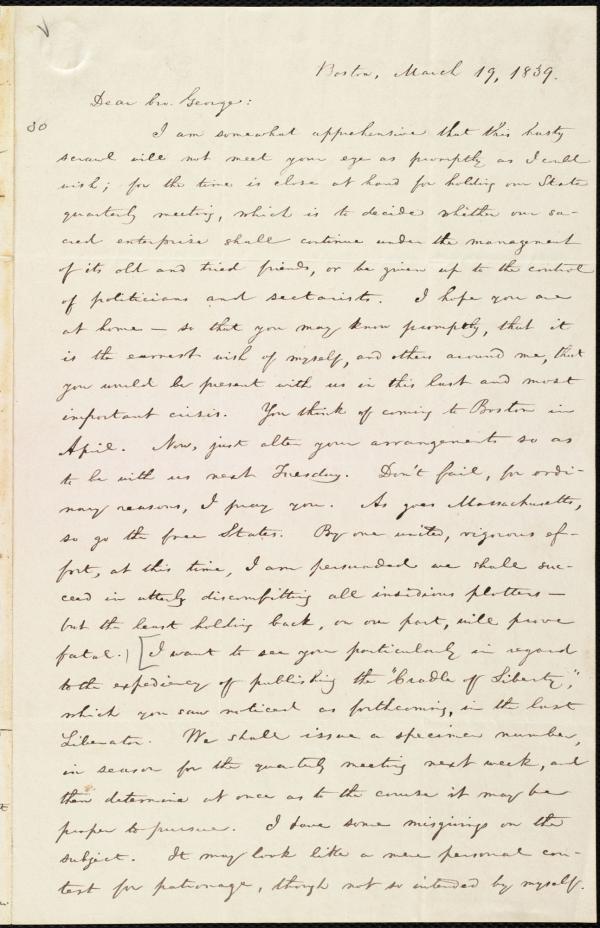 Boston, March 19, 1839.
Dear bro. George:
30
I am somewhat apprehensive that this hasty
scrawl will not meet your eye as promptly as I could
wish; for the time is close at hand for holding our State
quarterly meeting, which is to decide whether our sa-
cred enterprise shall continue under the management
of its old and tried friends, or be given up to the control
of politicians and sectarists. I hope you are
at home — so that you may know promptly, that it
is the earnest wish of myself, and others around me, that
you would be present with us in this last and most
important crisis. You think of coming to Boston in
April. Now, just alter your arrangements so as
to be with us next Tuesday. Don't fail, for ordi-
nary reasons, I pray you. As goes Massachusetts,
so go the free States. By one united, vigorous ef-
fort, at this time, I am persuaded we shall suc-
ceed in utterly discomfitting all insidious plotters —
but the least holding back, on our part, will prove
fatal.) [I want to see you particularly in regard
to the expediency of publishing the "Cradle of Liberty,"
which you saw noticed as forthcoming, in the last
Liberator. We shall issue a specimen number,
in season for the quarterly meeting next week, and
then determine at once as to the course it may be
proper to pursue. I have some misgivings on the
subject. It may look like a mere personal con-
test for patronage, though not so intended by myself.